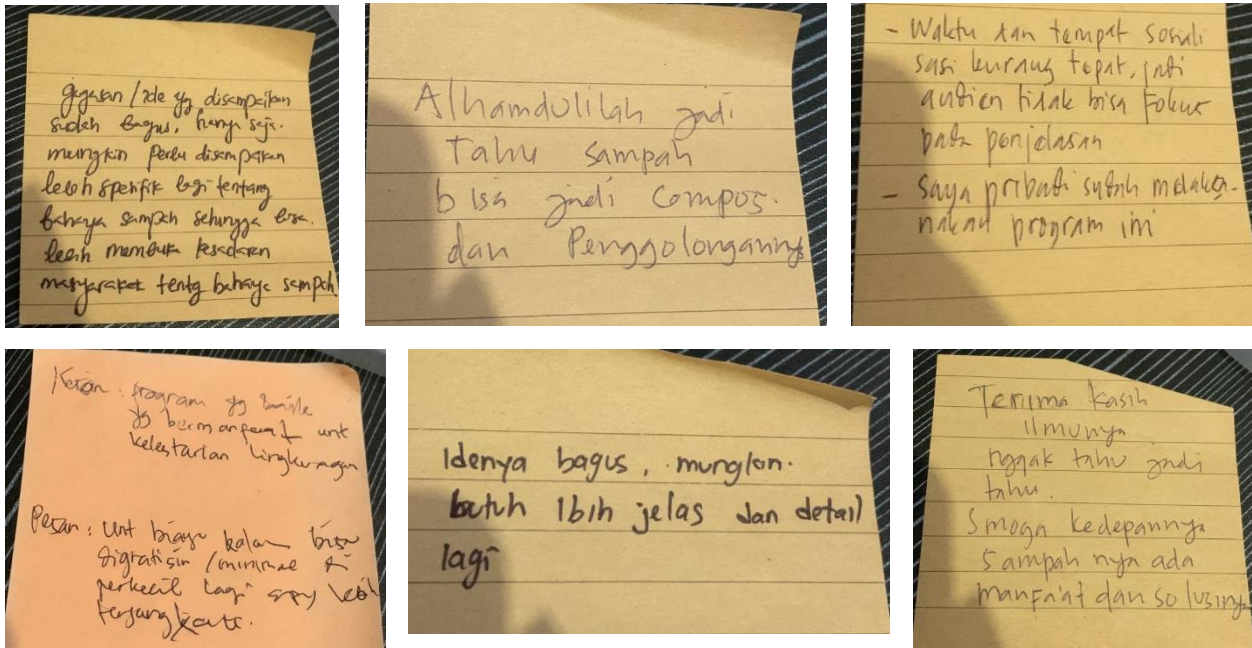 gagasan / ide yg disampaikan
sudah bagus, hanya saja.
mungkin perlu disampaikan
lebih spesifik lagi tentang
bahaya sampah sehingga bisa.
lebih membuka kesadaran
masyarakat tentg bahaya sampah
Alhamdulilah jadi
tahu sampah
bisa jadi compos.
dan Penggolongannya
- Waktu dan tempat sosiali
sasi kurang tepat, jadi
audien tidak bisa fokus
pada penjelasan
- Saya pribadi sudah melaksa-
nakan program ini
Kesan : program yg baik
yg bermanfaat unt
kelestarian lingkungan
Pesan : unt biaya kalau bisa
digratisin / minimal di
perkecil lagi spy lebih
terjangkau.
Idenya bagus, mungkin.
butuh lbih jelas dan detail
lagi
Terima kasih
ilmunya
nggak tahu jadi
tahu.
Smoga kedepannya
sampah nya ada
manfa'at dan solusinya